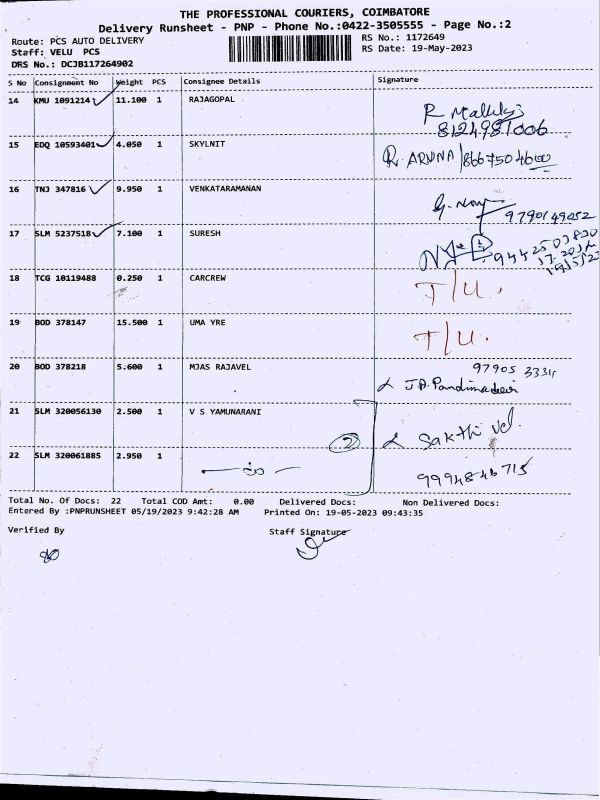 THE PROFESSIONAL COURIERS, COIMBATORE
Delivery Runsheet - PNP - Phone No.:0422-3505555 - Page No.:2
Route: PCS AUTO DELIVERY
RS No.: 1172649
Staff: VELU PCS
RS Date: 19-May-2023
DRS No.: DCJB117264902
S No Consignment No Weight PCS Consignee Details Signature
14 KMU 1091214 11.100 1 RAJAGOPAL
8124981006
15 EDQ 10593401 4.050 1 SKYLNIT R. ARUNA
16 TNJ 347816 9.950 1 VENKATARAMANAN
9790149052
17 SLM 5237518 7.100 1 SURESH
18 TCG 10119488 0.250 1 CARCREW T/U.
19 BOD 378147 15.500 1 UMA YRE T/U.
20 BOD 378218 5.600 1 MJAS RAJAVEL 97905 3334
J.A. Pandimadevi
21 SLM 320056130 2.500 1 V S YAMUNARANI
2 Sakthi vel.
22 SLM 320061885 2.950 1
9994846715
Total No. Of Docs: 22 Total COD Amt: 0.00 Delivered Docs: Non Delivered Docs:
Entered By :PNPRUNSHEET 05/19/2023 9:42:28 AM Printed On: 19-05-2023 09:43:35
Verified By Staff Signature